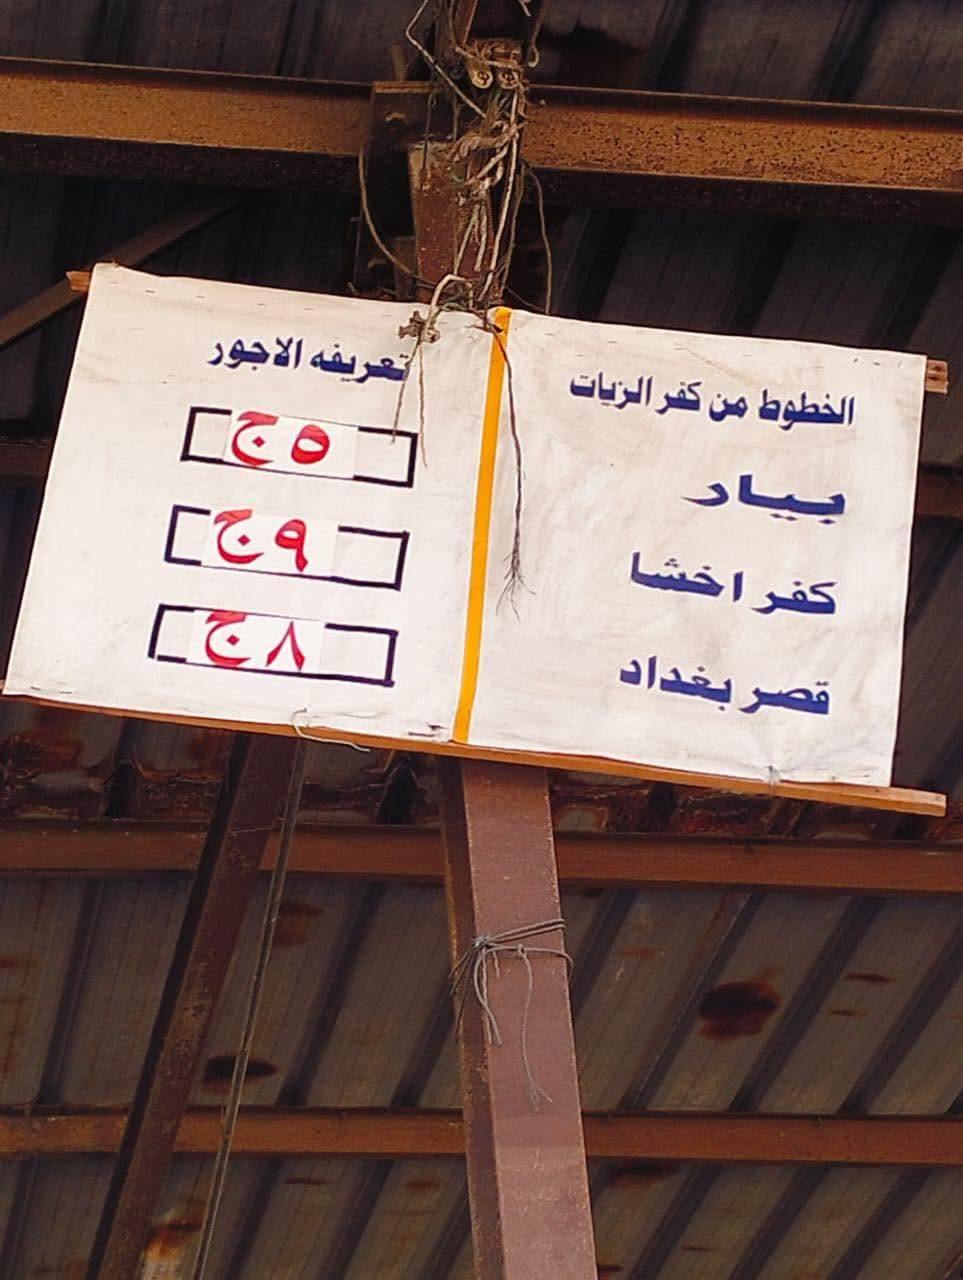 الخطوط من كفر الزيات
تعريفه الاجور
بيار
٥ ج
كفر اخشا
٩ ج
قصر بغداد
٨ ج